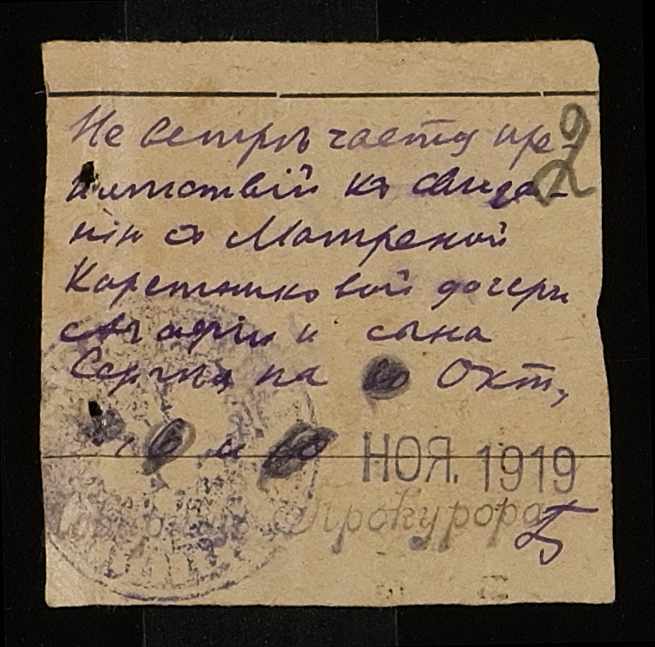 Не встрѣчается пре-
2
пятствій къ свида-
нію съ Матреной
Каретниковой дочери
и сына
Сергѣя на Окт.,
и
НОЯ. 1919
Прокурора